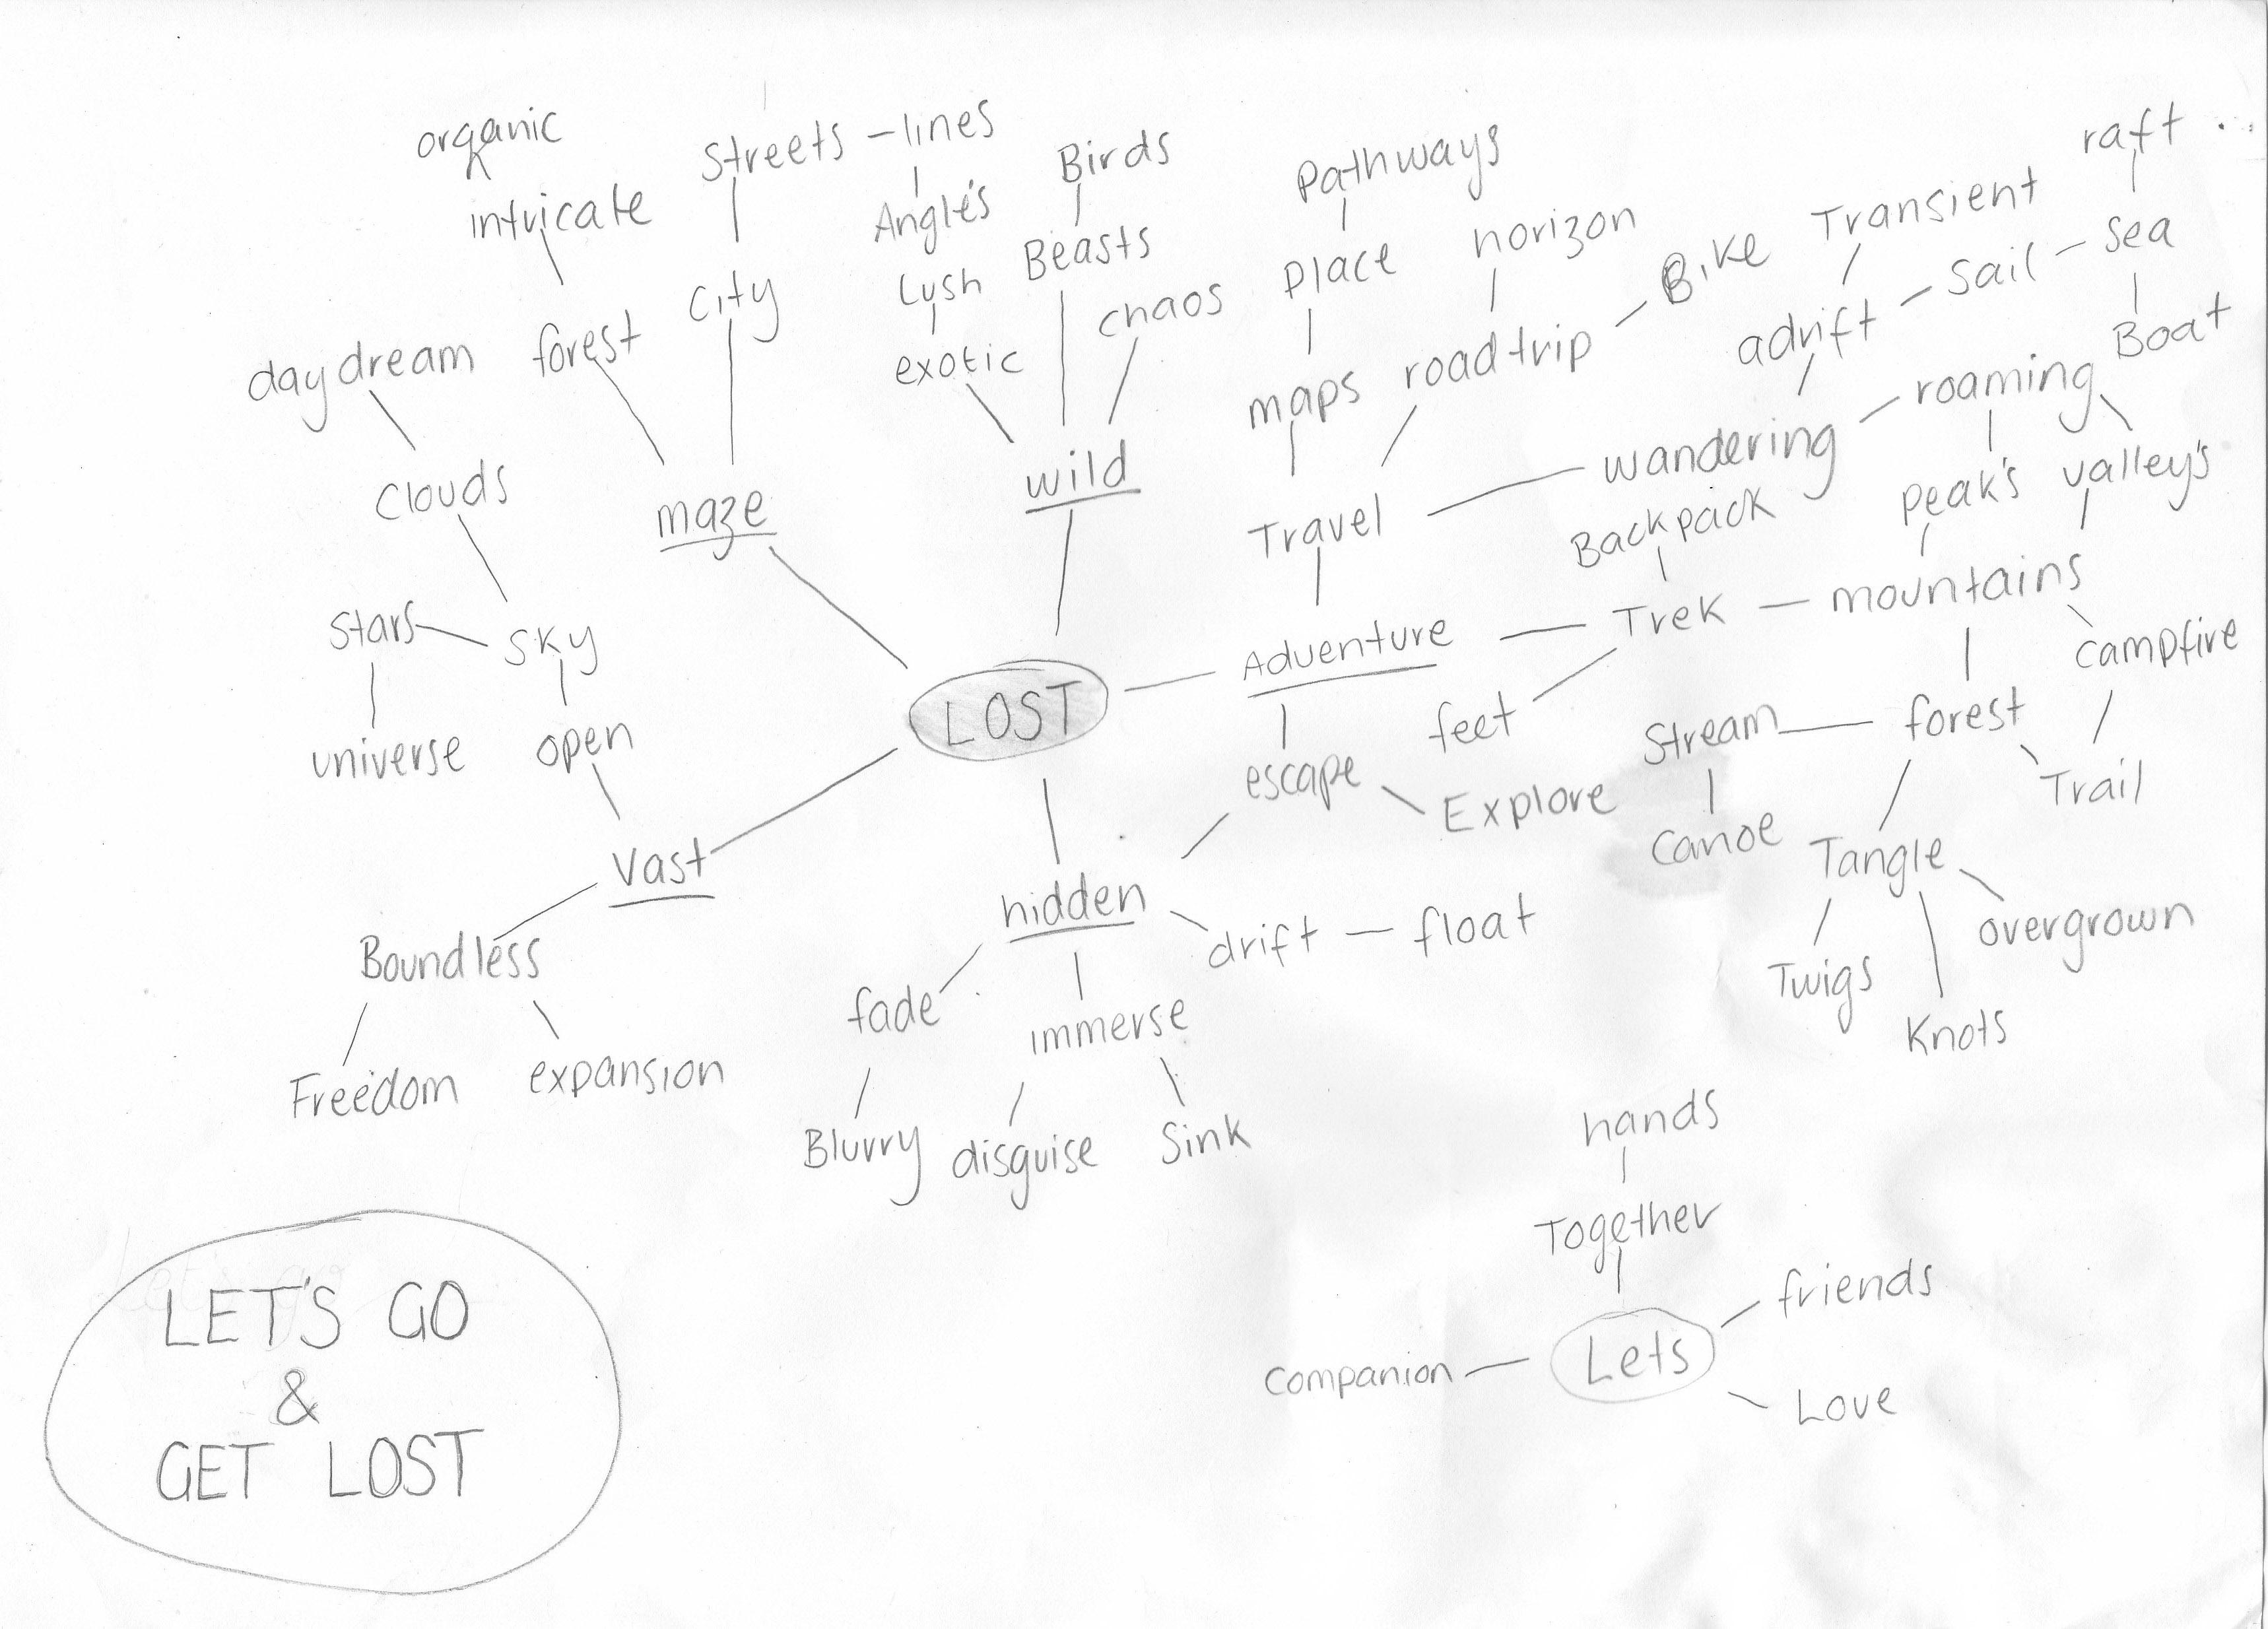 organic
intricate
Streets - lines
Angle's
Birds
Beasts
Lush
exotic
chaos
Pathways
Place
maps
horizon
road trip
Bike
Transient
raft
Sea
Sail
adrift
Boat
daydream
forest
City
Clouds
maze
wild
Travel
wandering
roaming
Backpack
Peak's
valley's
Stars
Sky
universe
open
LOST
Adventure
Trek
mountains
campfire
feet
Stream
forest
Trail
escape
Explore
Canoe
Tangle
overgrown
Twigs
Knots
Vast
Boundless
Freedom
expansion
hidden
drift - float
fade
immerse
Blurry
disguise
Sink
hands
Together
friends
Lets
Companion
Love
LET'S GO
&
GET LOST